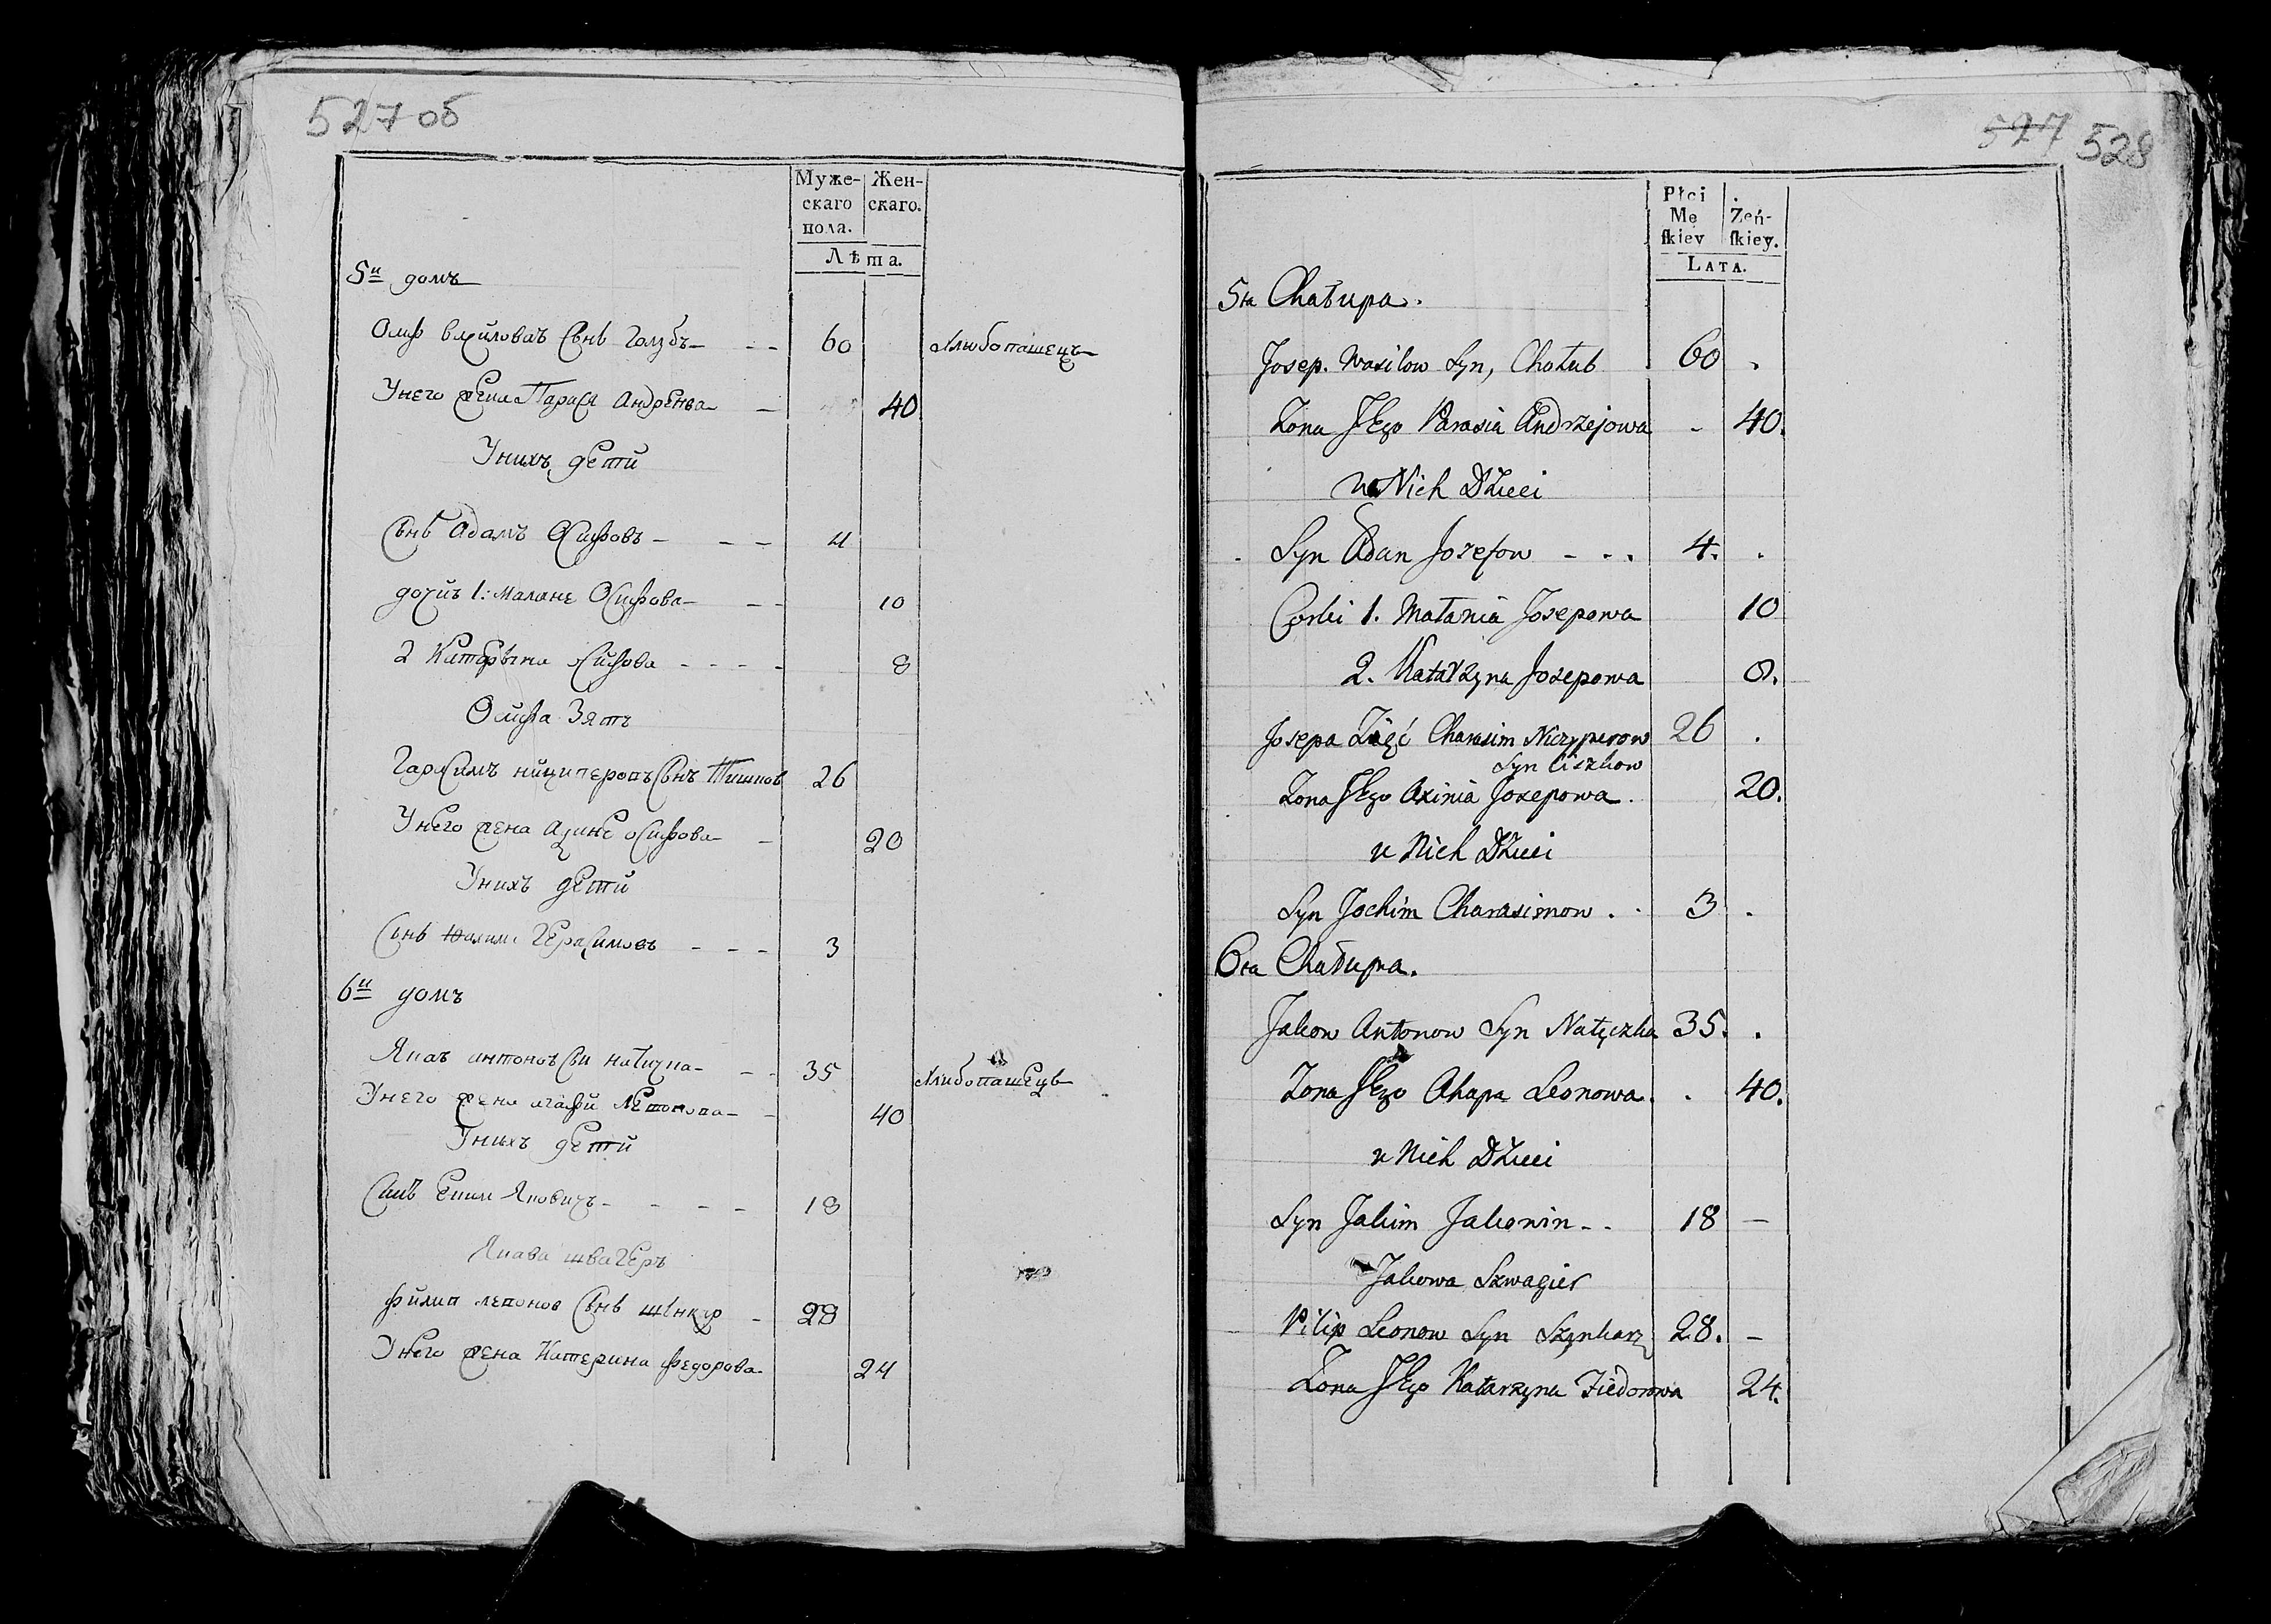 527 об
Муже-
скаго
пола.
Жен-
скаго.
Лѣта.
5й домъ
Осиф Василовъ Сынъ Голубъ - - 60 Хлюбопашецъ
У него жена Парася Андреева - 40
У нихъ дети
Сынъ Адамъ Осифовъ - - - 4
дочиъ 1: Малане Осифова - - 10
2 Катерына Осифова - - - - 8
Осифа Зять
Гарасимъ Ничипоровъ Сынъ 26
У него жена Аксине Осифова - 20
У нихъ дети
Сынъ Герасимовъ - - - 3
6й домъ
Яковъ Антоновъ Сын - - 35 Хлибопашецъ
У него жена Агафи - 40
У нихъ дети
Синъ Еким Яковичъ - - - - 18
Якова швагеръ
Филип Леонов Сынъ Шинкар - 28
У него жена Катерина Федорова 24
527 528
Płci
Mę
skiey
Żeń-
skiey.
LATA.
5ta Chałupa.
Josep. Wasilow Syn, Chołub 60 .
Żona Jego Parasia Andrzejowa - 40.
u Nich Dżieci
Syn Adan Jozefow - - . 4. .
Corki 1. Małania Josepowa 10
2. Katarzyna Josepowa 8.
Josepa Zięć Charasim Niczyperow 26 .
Syn Ciszkow
Żona Jego Axinia Josepowa. 20.
u Nich Dżieci
Syn Jochim Charasimow . . 3 .
6ta Chałupa.
Jakow Antonow Syn Natyczka 35. .
Żona Jego Ahapa Leonowa . . 40.
u Nich Dżieci
Syn Jakim Jakowin - - 18 —
Jakowa Szwagier
Pilip Leonow Syn Szynkarz 28. —
Żona Jego Katarzyna Fiedorowa 24.